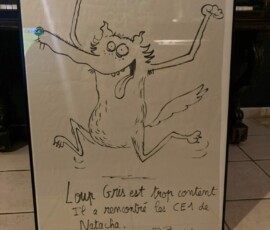 Loup Gris est trop content
Il a rencontré les CE1 de
Natacha.